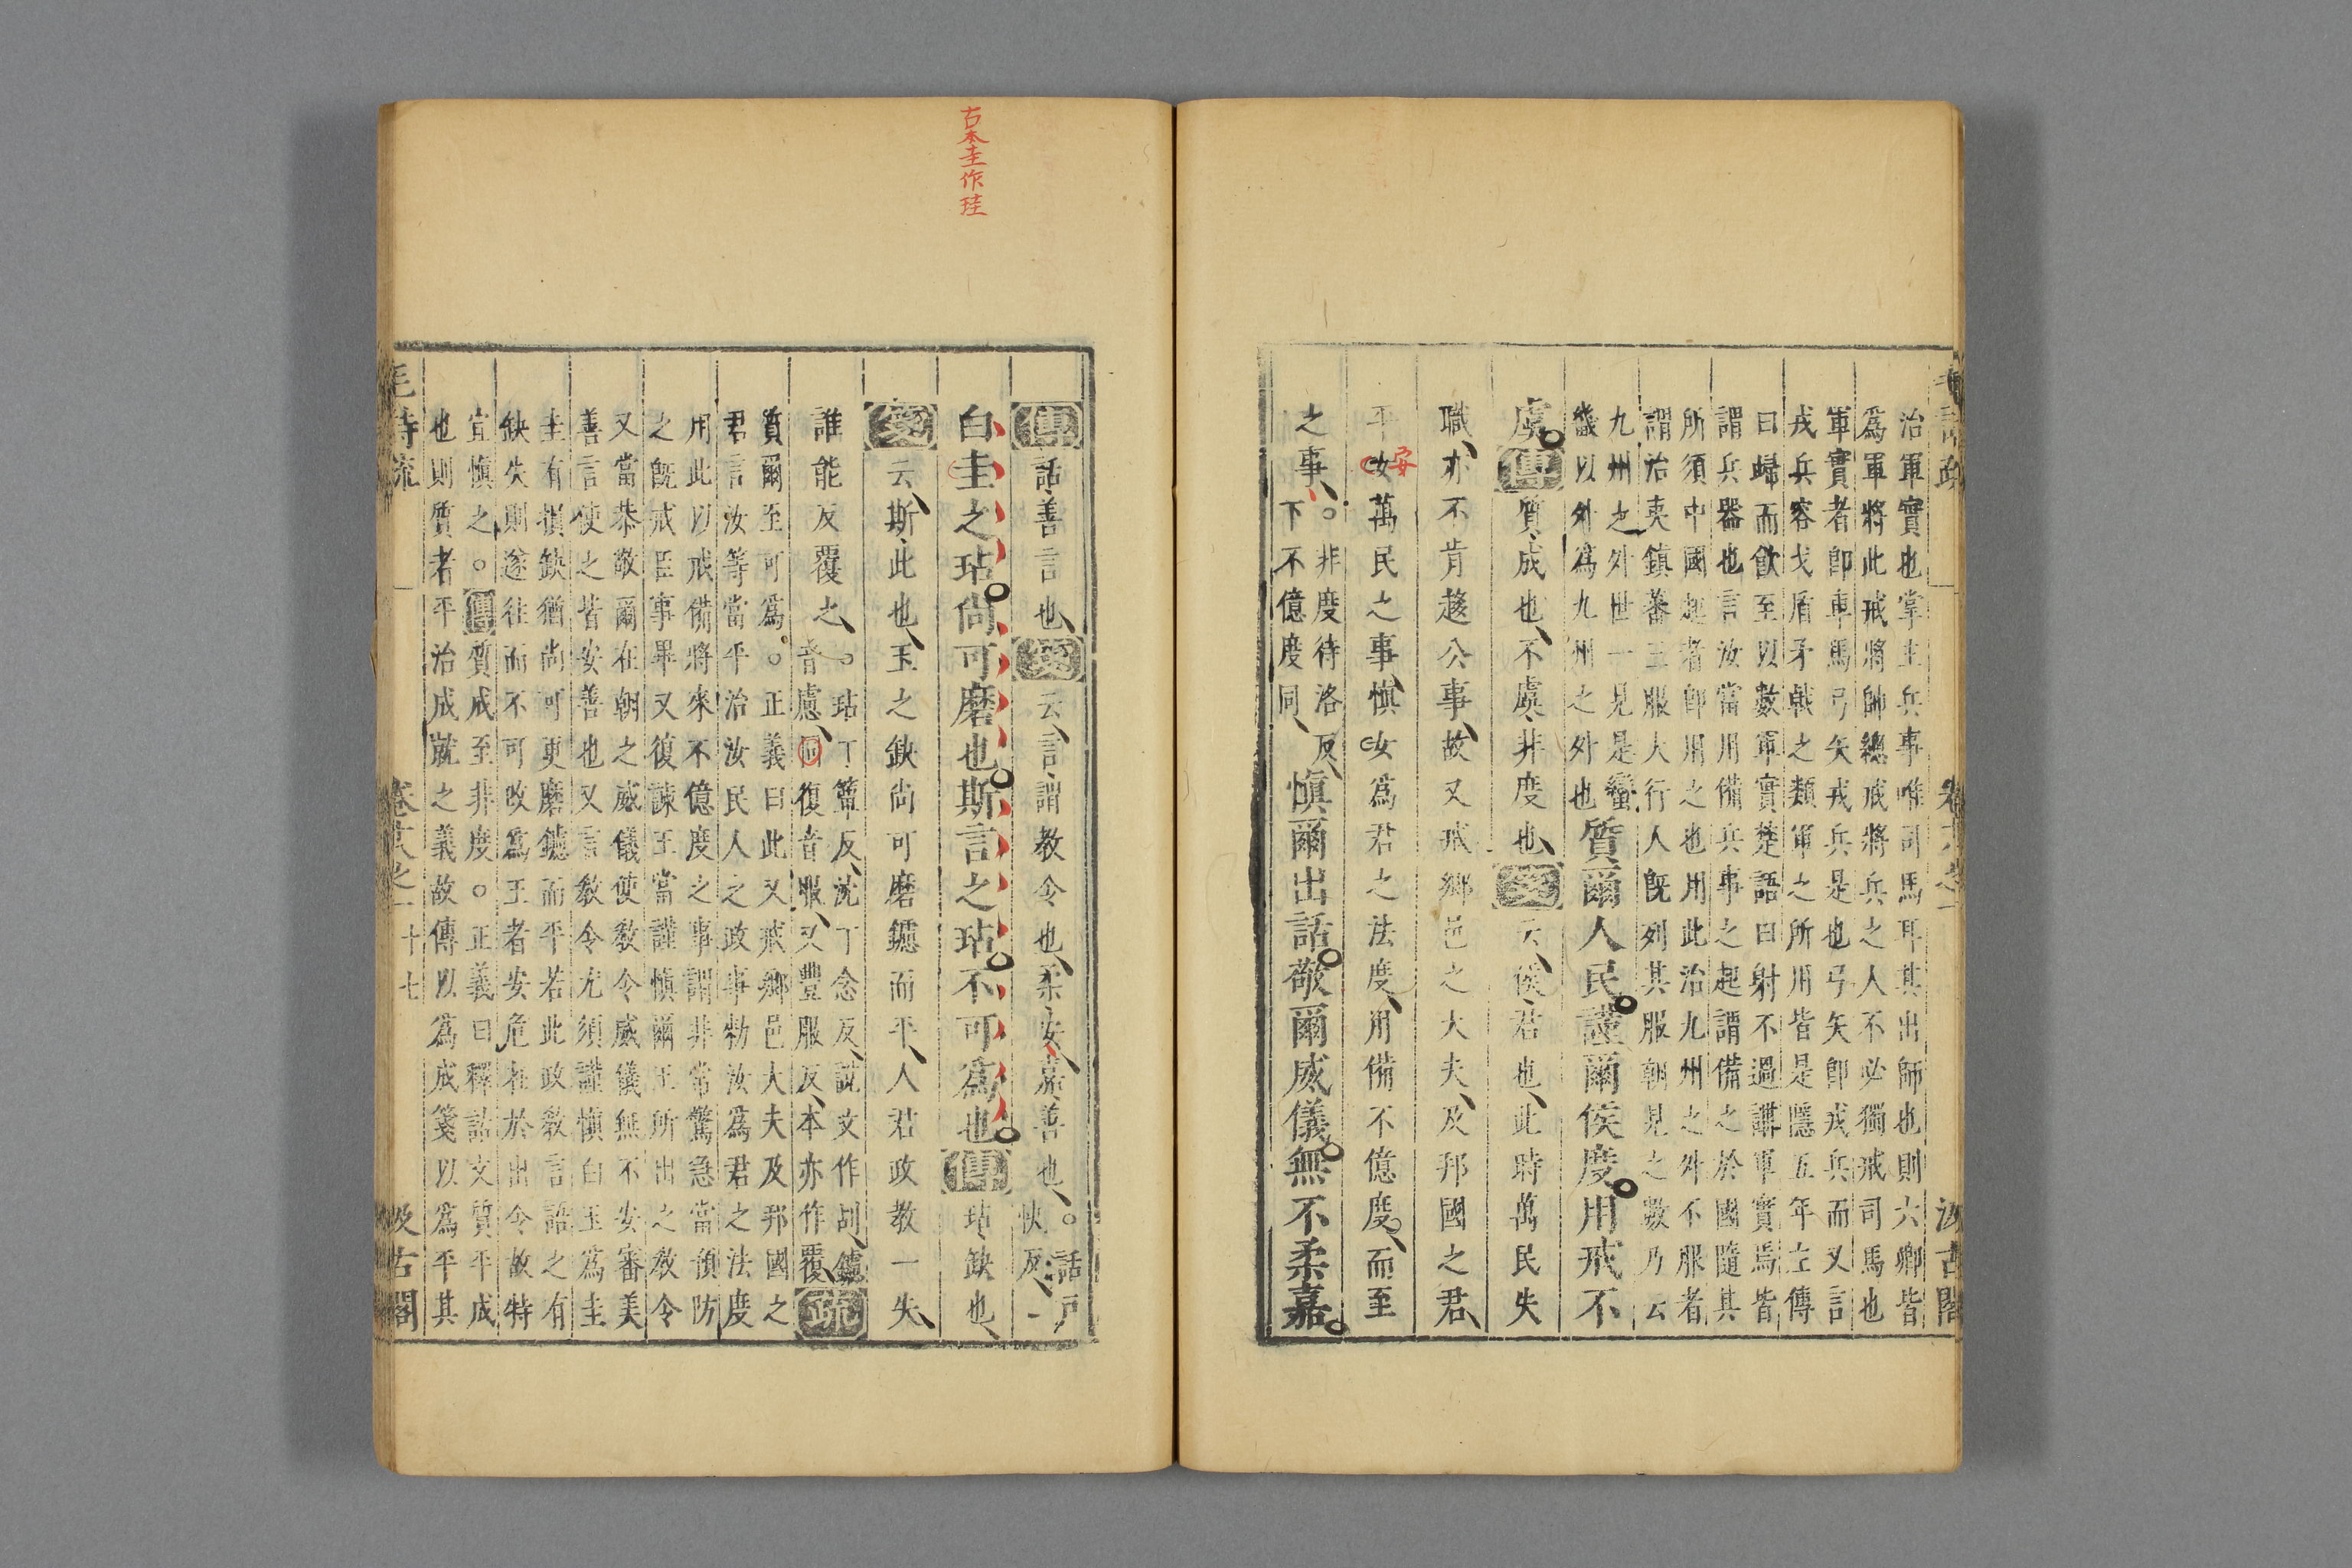 治軍實也掌主兵事唯司馬耳其出師也則六卿皆
爲軍將此戒將帥總戒將兵之人不必獨戒司馬也
軍實者卽車馬弓矢戎兵是也弓矢卽戎兵而又言
戎兵容戈盾矛戟之類軍之所用皆是隱五年左傳
曰歸而飮至以數軍實楚語曰射不過講軍實焉皆
謂兵器也言汝當用備兵事之起謂備之於國隨其
所須中國起者卽用之也用此治九州之外不服者
謂治夷鎮蕃三服大行人旣列其服朝見之數乃云
九州之外世一見是蠻
畿以外爲九州之外也
質爾人民謹爾侯度用戒不
虞傳質成也不虞非度也箋云侯君也此時萬民失
職亦不肯趨公事故又戒鄉邑之大夫及邦國之君
平女萬民之事愼女爲君之法度用備不億度而至
安
之事。
非度待洛反
下不億度同
愼爾出話敬爾威儀無不柔嘉
古本圭作珪
傳話善言也箋云言謂教令也柔安嘉善也。
話戸
快反
白圭之玷尚可磨也斯言之玷不可爲也傳玷缺也
箋云斯此也玉之缺尚可磨鑢而平人君政教一失
誰能反覆之。
玷丁簟反沈丁念反說文作㓠鑢
音慮同復音服又豐服反本亦作覆
疏
質爾至可爲。正義曰此又戒鄉邑大夫及邦國之
君言汝等當平治汝民人之政事勑汝爲君之法度
用此以戒備將來不億度之事謂非常驚急當預防
之旣戒臣事畢又復諫王當謹愼爾王所出之教令
又當恭敬爾在朝之威儀使教令威儀無不安審美
善言使之皆安善也又言教令尤須謹愼白玉爲圭
圭有損缺猶尚可更磨鑢而平若此政教言語之有
缺失則遂往而不可改爲王者安危在於出令故特
宜愼之。傳質成至非度。正義曰釋詁文質平成
也則質者平治成就之義故傳以爲成箋以爲平其
毛詩疏 卷十八之一 十七 汲古閣